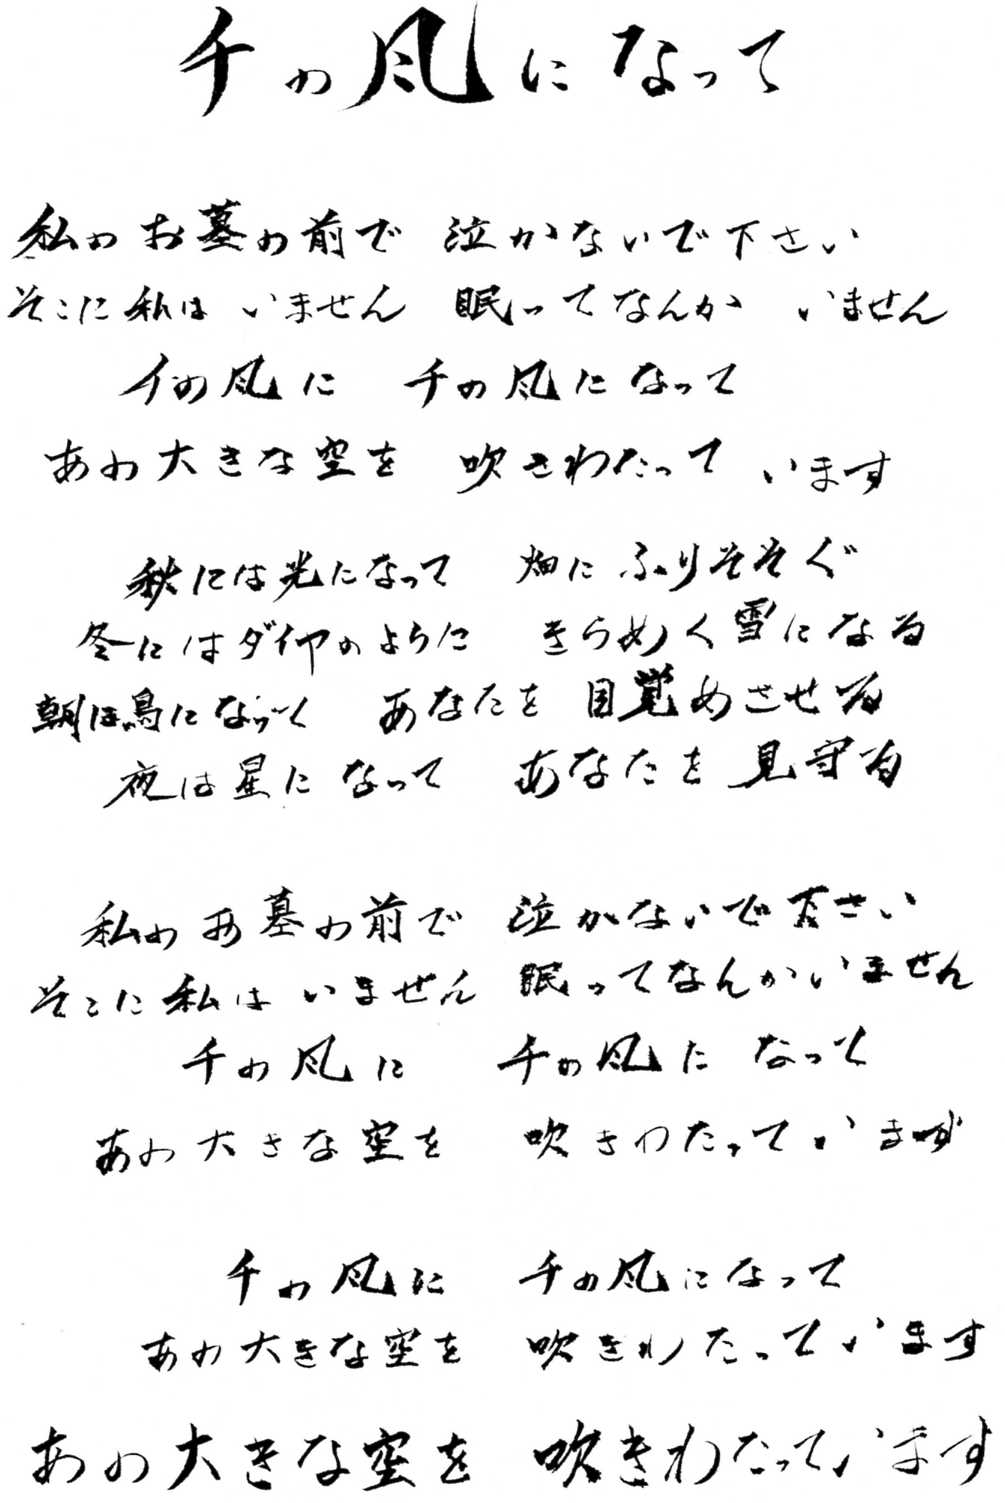 千の風になって
私のお墓の前で 泣かないで下さい
そこに私は いません 眠ってなんか いません
千の風に 千の風になって
あの大きな空を 吹きわたって います
秋には光になって 畑に ふりそそぐ
冬にはダイヤのように きらめく雪になる
朝は鳥になって あなたを 目覚めさせる
夜は星に なって あなたを 見守る
私のお墓の前で 泣かないで下さい
そこに私は いません 眠ってなんかいません
千の風に 千の風に なって
あの大きな空を 吹きわたっています
千の風に 千の風になって
あの大きな空を 吹きわたっています
あの大きな空を 吹きわたっています